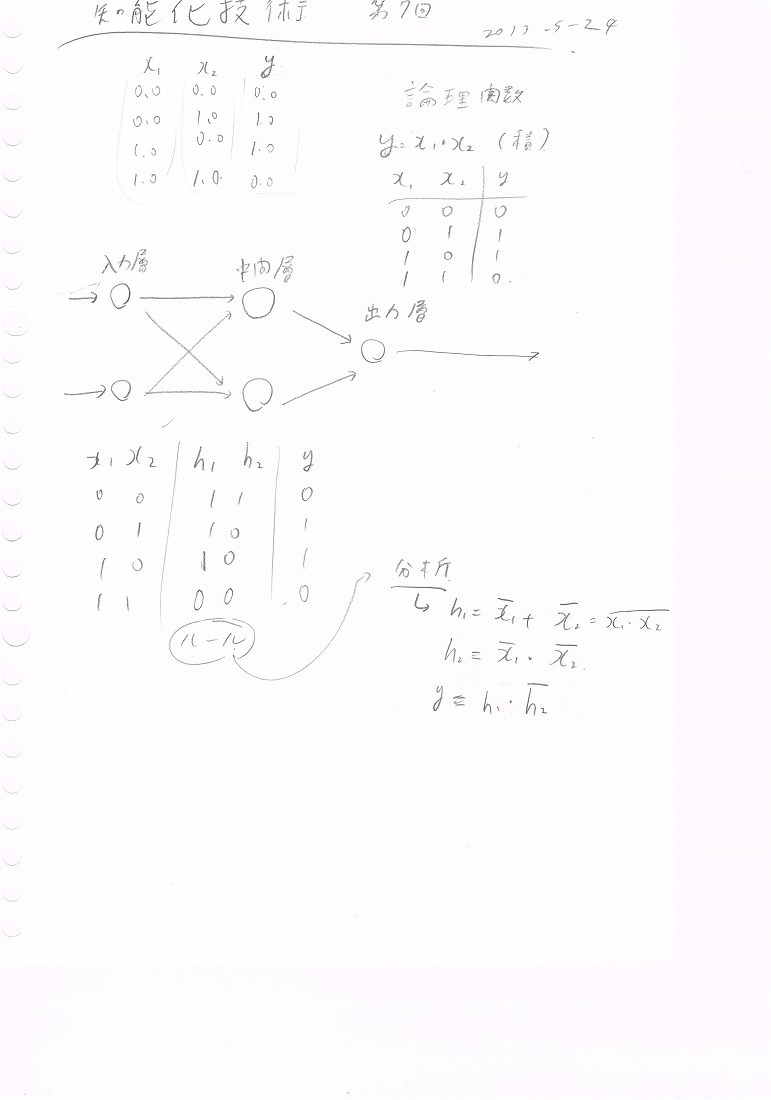 知能化技術 第7回
2013-5-24
x₁ x₂ y
0.0 0.0 0.0
0.0 1.0 1.0
1.0 0.0 1.0
1.0 1.0 0.0
論理関数
y=x₁・x₂ (積)
x₁ x₂ y
0 0 0
0 1 1
1 0 1
1 1 0
入力層 中間層
出力層
x₁ x₂ h₁ h₂ y
0 0 1 1 0
0 1 1 0 1
1 0 1 0 1
1 1 0 0 0
ルール
分析
↳ h₁ = x̅₁ + x̅₂ = x̅₁̅・̅x̅₂̅
h₂ = x̅₁・x̅₂
y = h₁・h̅₂